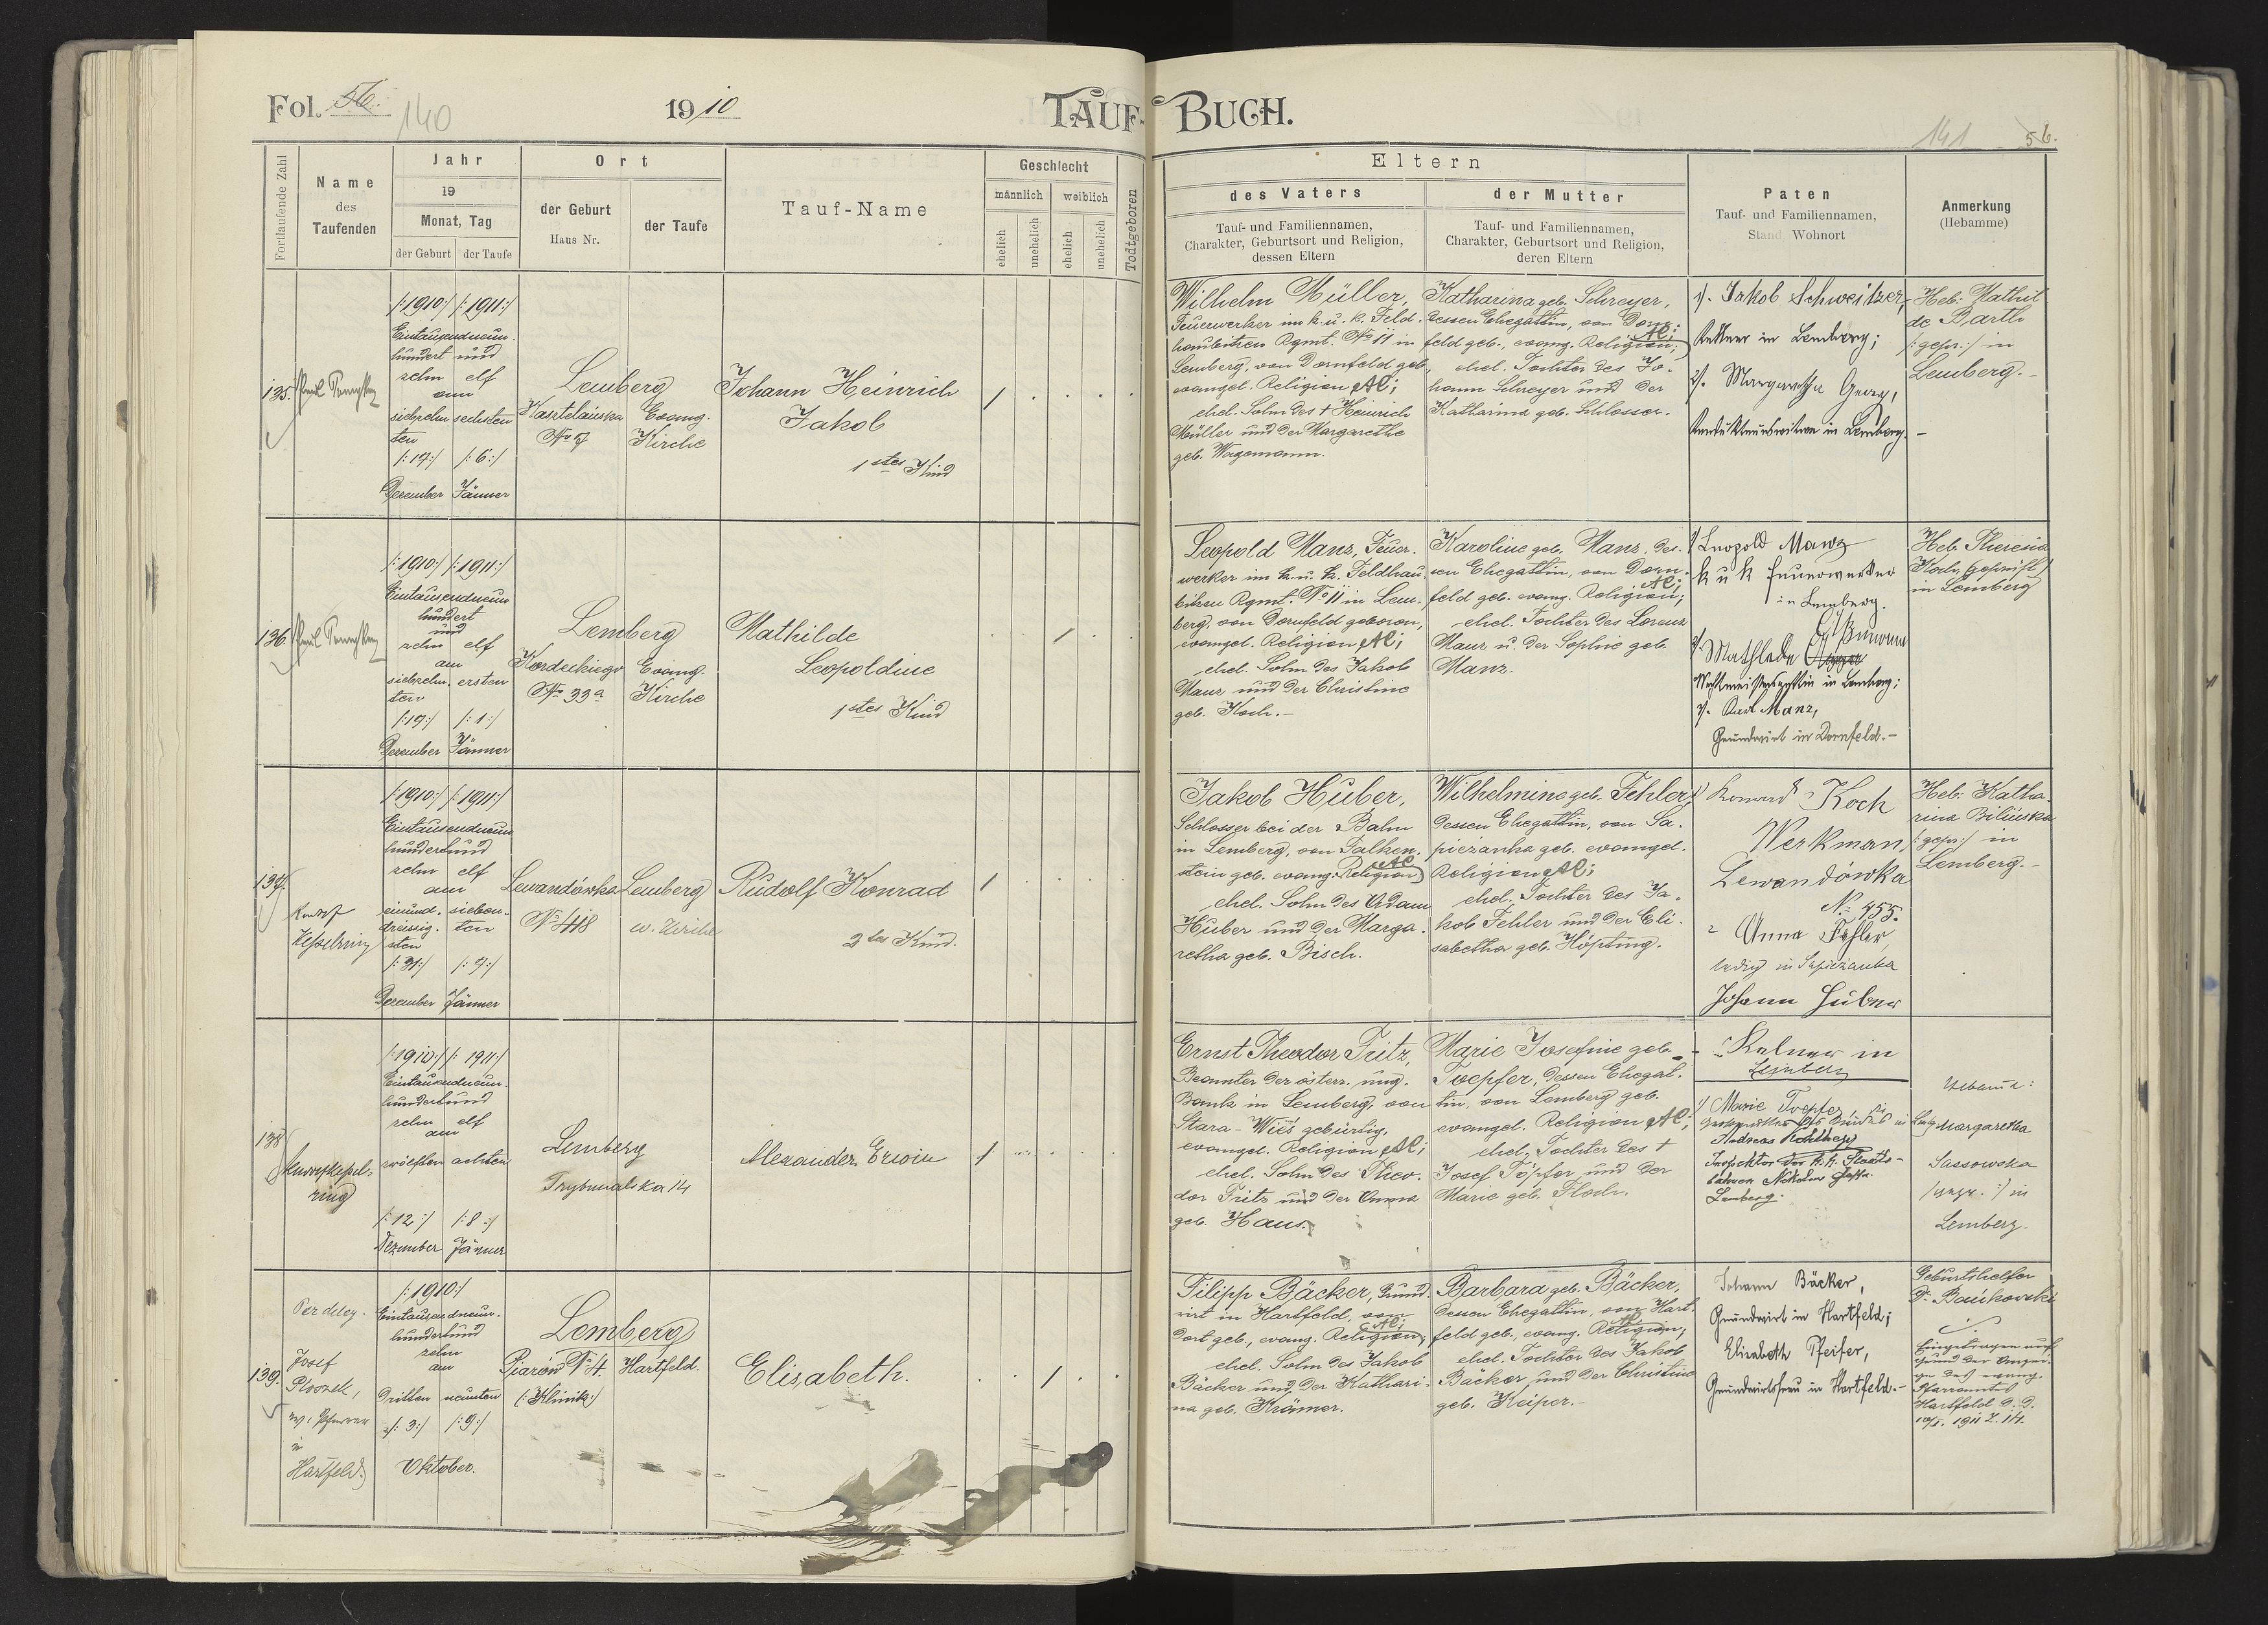 Fol. 56.
140
1910
TAUF-BUCH.
141
56.
Fortlaufende Zahl
Name
des
Taufenden
Jahr
19
Monat, Tag
der Geburt
der Taufe
Ort
der Geburt
Haus Nr.
der Taufe
Tauf-Name
Geschlecht
männlich
weiblich
ehelich
unehelich
ehelich
unehelich
Todtgeboren
Eltern
des Vaters
Tauf- und Familiennamen,
Charakter, Geburtsort und Religion,
dessen Eltern
der Mutter
Tauf- und Familiennamen,
Charakter, Geburtsort und Religion,
deren Eltern
Paten
Tauf- und Familiennamen,
Stand, Wohnort
Anmerkung
(Hebamme)
135.
/:1910:/ /:1911:/
Eintausendneun-
hundert und
zehn elf
am
siebzehn- sechsten
ten
/:17:/ /:6:/
December Jänner
Lemberg
Kasztelańska Evang.
No 7 Kirche
Johann Heinrich
Jakob
1stes Kind
1
Wilhelm Müller,
Feuerwerker im k. u. k. Feld-
haubitzen Rgmt. No 11 in
Lemberg, von Dornfeld geb.,
evangel. Religion AC;
ehel. Sohn des † Heinrich
Müller und der Margarethe
geb. Wagemann.
Katharina geb. Schreyer,
dessen Ehegattin, von Dorn-
feld geb., evang. Religion, AC;
ehel. Tochter des Jo-
hann Schreyer und der
Katharina geb. Schlosser.
1/. Jakob Schweitzer,
Kellner in Lemberg;
2/. Margaretha Georg,
Kondukteurswitwe in Lemberg.
Heb: Mathil-
de Barth
/:gepr:/ in
Lemberg.
136.
/:1910:/ /:1911:/
Eintausendneun-
hundert
und
zehn elf
am
siebzehn- ersten
ten
/:17:/ /:1:/
December Jänner
Lemberg
Kordeckiego Evang.
No 33a Kirche
Mathilde
Leopoldine
1stes Kind
1
Leopold Manz, Feuer-
werker im k. u. k. Feldhau-
bitzen Rgmt. No 11 in Lem-
berg, von Dornfeld geboren,
evangel. Religion AC;
ehel. Sohn des Jakob
Manz und der Christine
geb. Koch.
Karoline geb. Manz, des-
sen Ehegattin, von Dorn-
feld geb. evang. Religion, AC;
ehel. Tochter des Lorenz
Manz u. der Sophie geb.
Manz.
1/ Leopold Manz
k u k Feuerwerker
in Lemberg.
2/. Mathilde
Wachtmeistersgattin in Lemberg;
3/. Karl Manz,
Grundwirt in Dornfeld.
Heb. Theresia
Koch, geprüft
in Lemberg
137.
Kesselring
/:1910:/ /:1911:/
Eintausendneun-
hundertund
zehn elf
am
einund- sieben-
dreissig- ten
sten
/:31:/ /:7:/
December Jänner
Lewandówka Lemberg
No 448 ev. Kirche
Rudolf Konrad
2tes Kind.
1
Jakob Huber,
Schlosser bei der Bahn
in Lemberg, von Falken-
stein geb. evang. Religion AC
ehel. Sohn des Adam
Huber und der Marga-
retha geb. Bisch.
Wilhelmine geb. Fehler,
dessen Ehegattin, von Sa-
pieżanka geb. evangel.
Religion AC;
ehel. Tochter des Ja-
kob Fehler und der Eli-
sabetha geb. Höpting.
1 Konrad Koch
Werkman,
Lewandówka
No 455.
2 Anna Fehler
ledig in Sapieżanka
Johann Huber
Kelner in
Lemberg
Heb: Katha-
rina Bilińska
/:gepr:/ in
Lemberg.
138
/:1910:/ /:1911:/
Eintausendneun-
hundertund
zehn elf
am
zwölften achten
/:12:/ /:8:/
Dezember Jänner
Lemberg
Trybunalska 14
Alexander Erwin
1
Ernst Theodor Fritz,
Beamter der österr. ung.
Bank in Lemberg, von
Stara-Wieś gebürtig,
evangel. Religion AC;
ehel. Sohn des Theo-
dor Fritz und der Anna
geb. Haus.
Marie Josefine geb.
Toepfer, dessen Ehegat-
tin, von Lemberg geb.
evangel. Religion AC;
ehel. Tochter des †
Josef Töpfer und der
Marie geb. Floch.
1/ Marie Toepfer
Grossmutter des Kindes in Lbg
Andreas
Inspektor der k.k. Staats-
bahnen
Lemberg.
Hebame:
Margaretha
Sassowska
/gepr.:/ in
Lemberg.
139.
Per deleg.
Josef
ev. Pfarrer
in
Hartfeld.
/:1910:/
Eintausendneun-
hundertund
zehn
am
dritten neunten
/:3:/ /:9:/
Oktober.
Lemberg
Piarów No 4. Hartfeld.
(:Klinik:)
Elisabeth.
1
Filipp Bäcker, Grund-
wirt in Hartfeld, von
dort geb., evang. Religion, AC;
ehel. Sohn des Jakob
Bäcker und der Kathari-
na geb. Krämer.
Barbara geb. Bäcker,
dessen Ehegattin, von Hart-
feld geb., evang. Religion, AC;
ehel. Tochter des Jakob
Bäcker und der Christine
geb. Keiper.
Johann Bäcker,
Grundwirt in Hartfeld;
Elisabeth Pfeifer,
Grundwirtsfrau in Hartfeld.
Geburtshelfer
Dr. Bańkowski
Eingetragen auf
Grund der Anzei-
ge des evang.
Pfarramtes
Hartfeld d. d.
10/I. 1911 Z. 14.